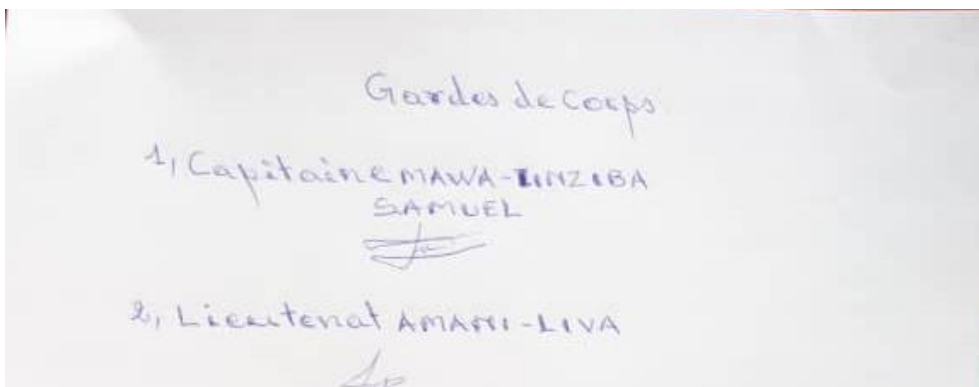 Gardes de Corps
1, Capitaine MAWA-LINZIBA
SAMUEL
2, Lieutenat AMANI-LIVA